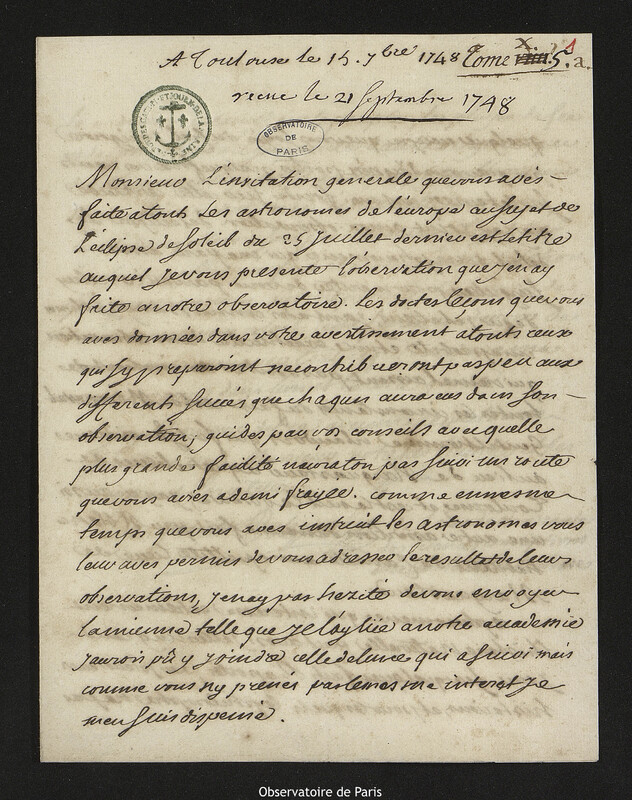 A Toulouse le 15. 7bre 1748 Tome X 5. 1 a.
recue le 21 Septembre 1748
OBSERVATOIRE
DE
PARIS
Monsieur L'invitation generale que vous avés
faite a touts Les astronomes de l'europe au Sujet de
L'eclipse de Soleil du 25 Juillet dernier est le titre
auquel Je vous presente l'observation que J'en ay
faite a notre observatoire. Les doctes leçons que vous
aves données dans votre avertissement a touts ceux
qui s'y preparoint ne contribueront pas peu aux
differents succés que chaqun aura eus dans son
observation; guides par vos conseils avec quelle
plus grande facilité n'aura ton pas suivi un route
que vous aviés a demi frayée. comme en mesme
temps que vous aves instruit les astronomes vous
leur aves permis de vous adresser le resultat de leurs
observations, J'en ay pas hezité de vous envoyer
la mienne telle que Je l'ay lüe a notre academie
J'aurois pû y Joindre celle de luce qui a suivi mais
comme vous n'y prenés pas le mesme interet Je
m'en suis dispensé.
Observatoire de Paris